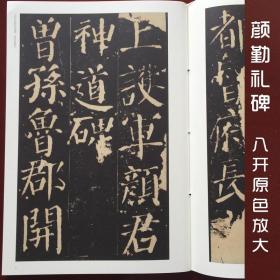 都督府長
上護軍顏君
神道碑
曾孫魯郡開
颜勤礼碑
八开原色放大